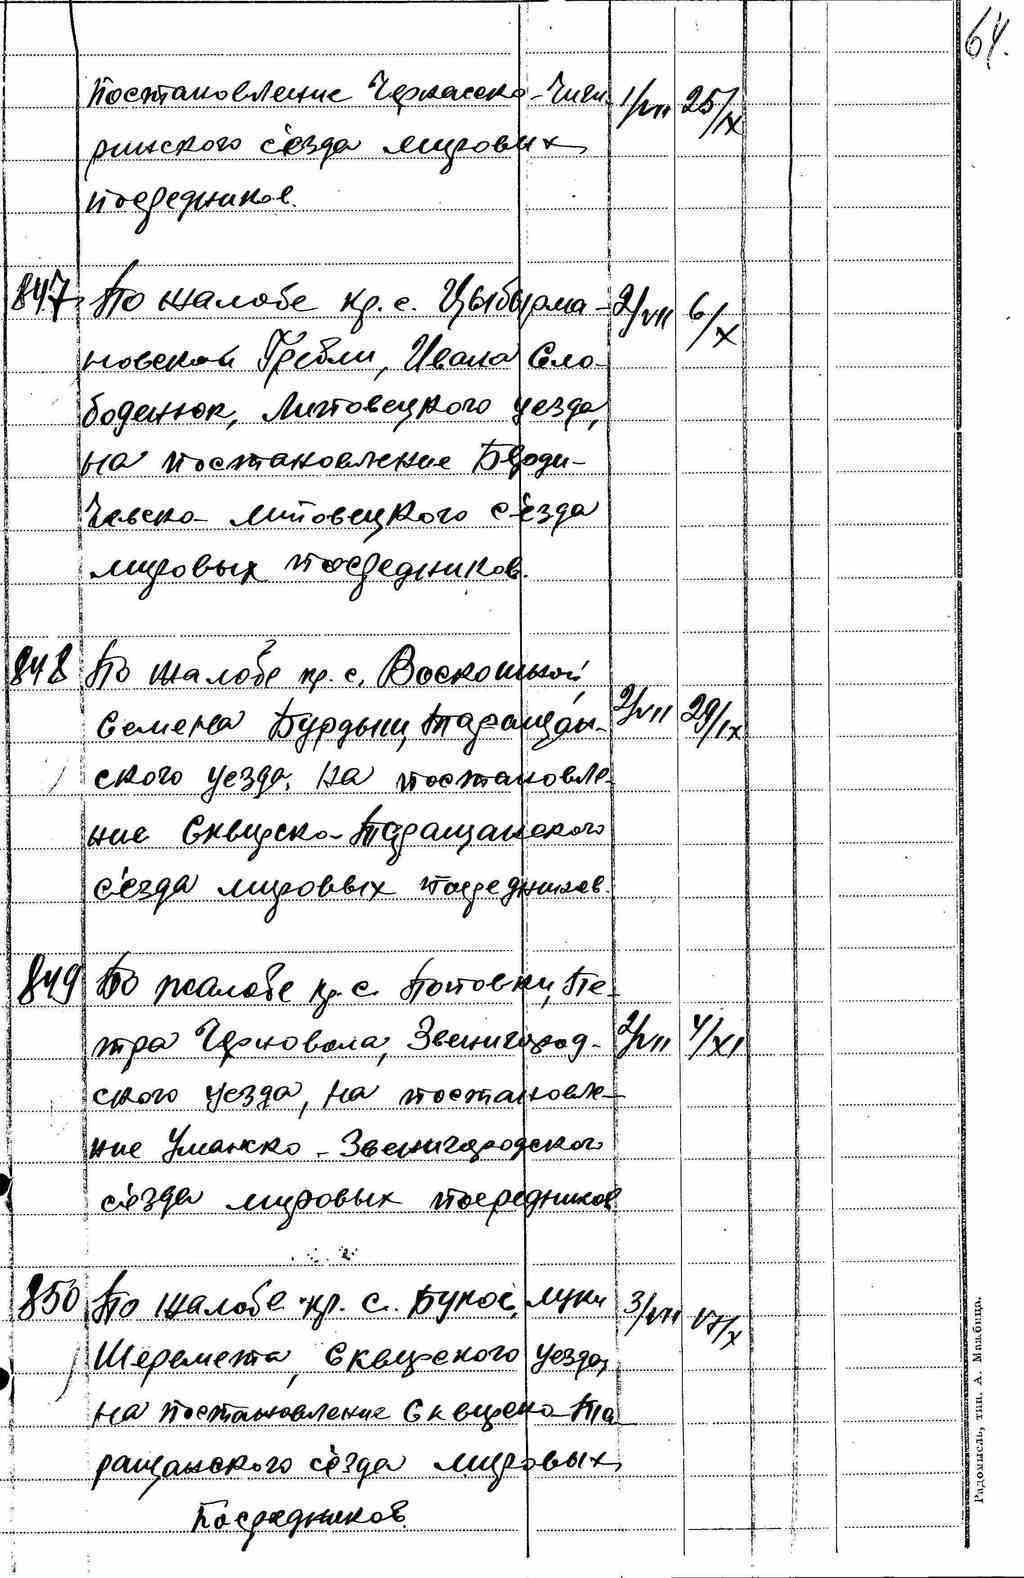 64.
Постановление Черкасско-Чиги- 1/VII 25/IX
ринского с'езда мировых
посредников.
847 По жалобе кр. с. Цыбурма- 2/VII 6/X
новской Гребли, Ивана Сло-
боденюк, Липовецкого уезда,
на постановление Берди-
чевско-Липовецкого с'езда
мировых посредников.
848 По жалобе кр. с.
Семена Бурдыги, Таращан- 2/VII 29/IX
ского уезда, на постановле-
ние Сквирско-Таращанского
с'езда мировых посредников.
849 По жалобе кр. с. Поповки, Пе-
тра Черновола, Звенигород- 2/VII 4/XI
ского уезда, на постановле-
ние Уманско-Звенигородского
с'езда мировых посредников
850 По жалобе кр. с. Луки 3/VII 17/X
Шеремета, Сквирского уезда,
на постановление Сквирско-Та
ращанского с'езда мировых
Посредников.
Радомысль, тип. А.